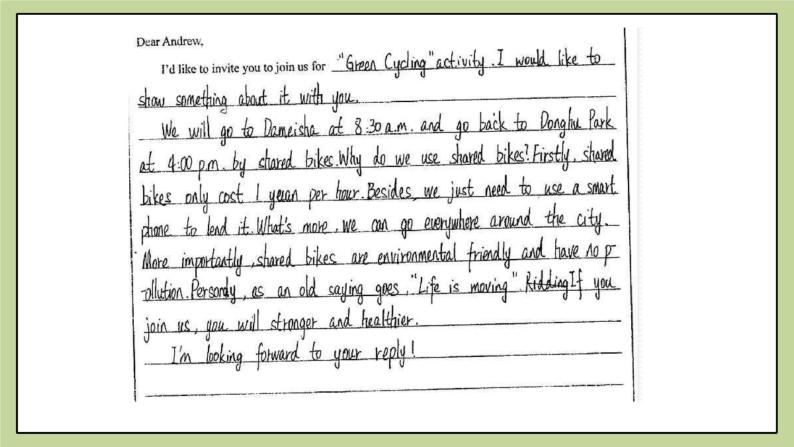 Dear Andrew,
I'd like to invite you to join us for "Green Cycling" activity. I would like to
show something about it with you.
We will go to Dameisha at 8:30 a.m. and go back to Donghu Park
at 4:00 p.m. by shared bikes. Why do we use shared bikes? Firstly, shared
bikes only cost 1 yeuan per hour. Besides, we just need to use a smart
phone to lend it. What's more, we can go everywhere around the city.
More importantly, shared bikes are environmental friendly and have no p
-ollution. Personaly, as an old saying goes, "Life is moving". Ridding If you
join us, you will stronger and healthier.
I'm looking forward to your reply!